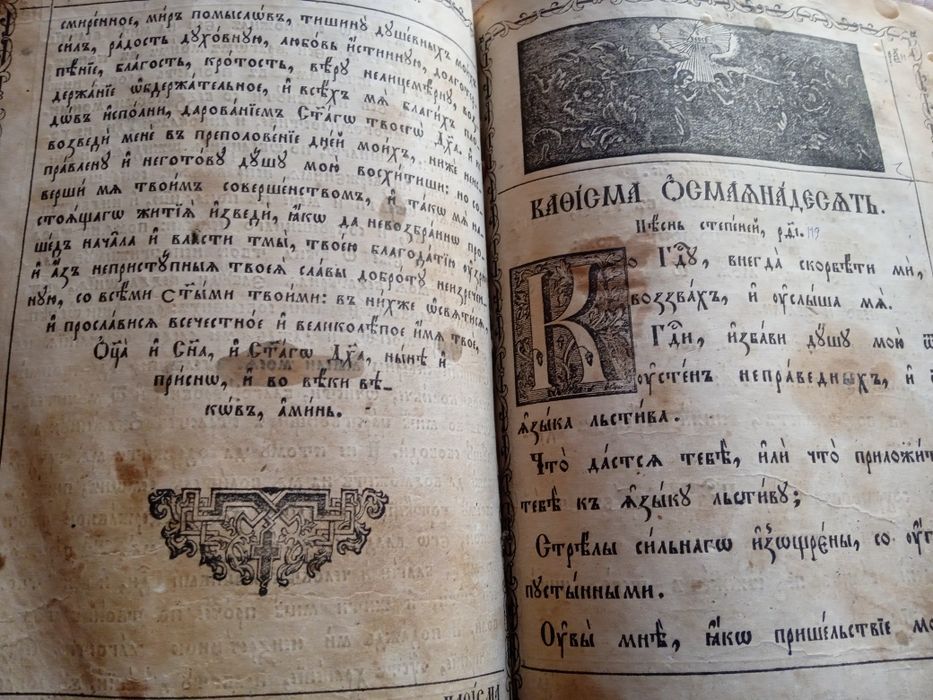 смире́нное, ми́ръ помыслѡ́въ, тишинꙋ̀ дꙋше́вныхъ мои́хъ
си́лъ, ра́дость дꙋхо́внꙋю, любо́вь и҆́стиннꙋю, долготер
пѣ́нїе, бла́гость, кро́тость, вѣ́рꙋ нелицемѣ́рнꙋ, воз
держа́нїе ѡ҆бдержа́тельное, и҆ всѣ́хъ мѧ̀ благи́хъ пло
дѡ́въ и҆спо́лни, дарова́нїемъ ст҃а́гѡ твоегѡ̀ дх҃а, и҆ не
возведѝ менѐ въ преполове́нїе дні́й мои́хъ, нижѐ неиспра
пра́вленꙋ и҆ негото́вꙋ дꙋ́шꙋ мою̀ восхи́тиши: но со
вершѝ мѧ̀ твои́мъ соверше́нствомъ, и҆ та́кѡ мѧ̀ на
стоѧ́щагѡ житїѧ̀ и҆зведѝ, ꙗ҆́кѡ да невозбра́ннѡ про
ше́дъ нача́ла и҆ вла̑сти тмы̀, твое́ю благода́тїю ᲂу҆зрю̀
и҆ а҆́зъ непристꙋ́пныѧ твоеѧ̀ сла́вы добро́тꙋ неизрече́н
нꙋю, со всѣ́ми ст҃ы́ми твои́ми: въ ни́хже ѡ҆свѧти́сѧ,
и҆ просла́висѧ всечестно́е и҆ великолѣ́пое и҆́мѧ твоѐ,
Ѻ҆ц҃а̀ и҆ сн҃а, и҆ ст҃а́гѡ дх҃а, ны́нѣ и҆
при́снѡ, и҆ во вѣ́ки вѣ_
кѡ́въ, а҆ми́нь.
каѳі́сма
Каѳі́сма ѻ҆смаѧна́десѧть.
Пѣ́снь степе́ней, р҃ѳі. 119
Ко гд҃ꙋ, внегда̀ скорбѣ́ти мѝ,
воззва́хъ, и҆ ᲂу҆слы́ша мѧ̀.
Гд҃и, и҆зба́ви дꙋ́шꙋ мою̀ ѿ
ᲂу҆сте́нъ непра́ведныхъ, и҆
ꙗ҆зы́ка льсти́ва.
Что̀ да́стсѧ тебѣ̀, и҆лѝ что̀ приложи́т
тебѣ̀ къ ꙗ҆зы́кꙋ льсти́вꙋ;
Стрѣ́лы си́льнагѡ и҆зѡщре́ны, со
пꙋсты́нными.
Оу҆вы̀ мнѣ̀, ꙗ҆́кѡ прише́льствїе